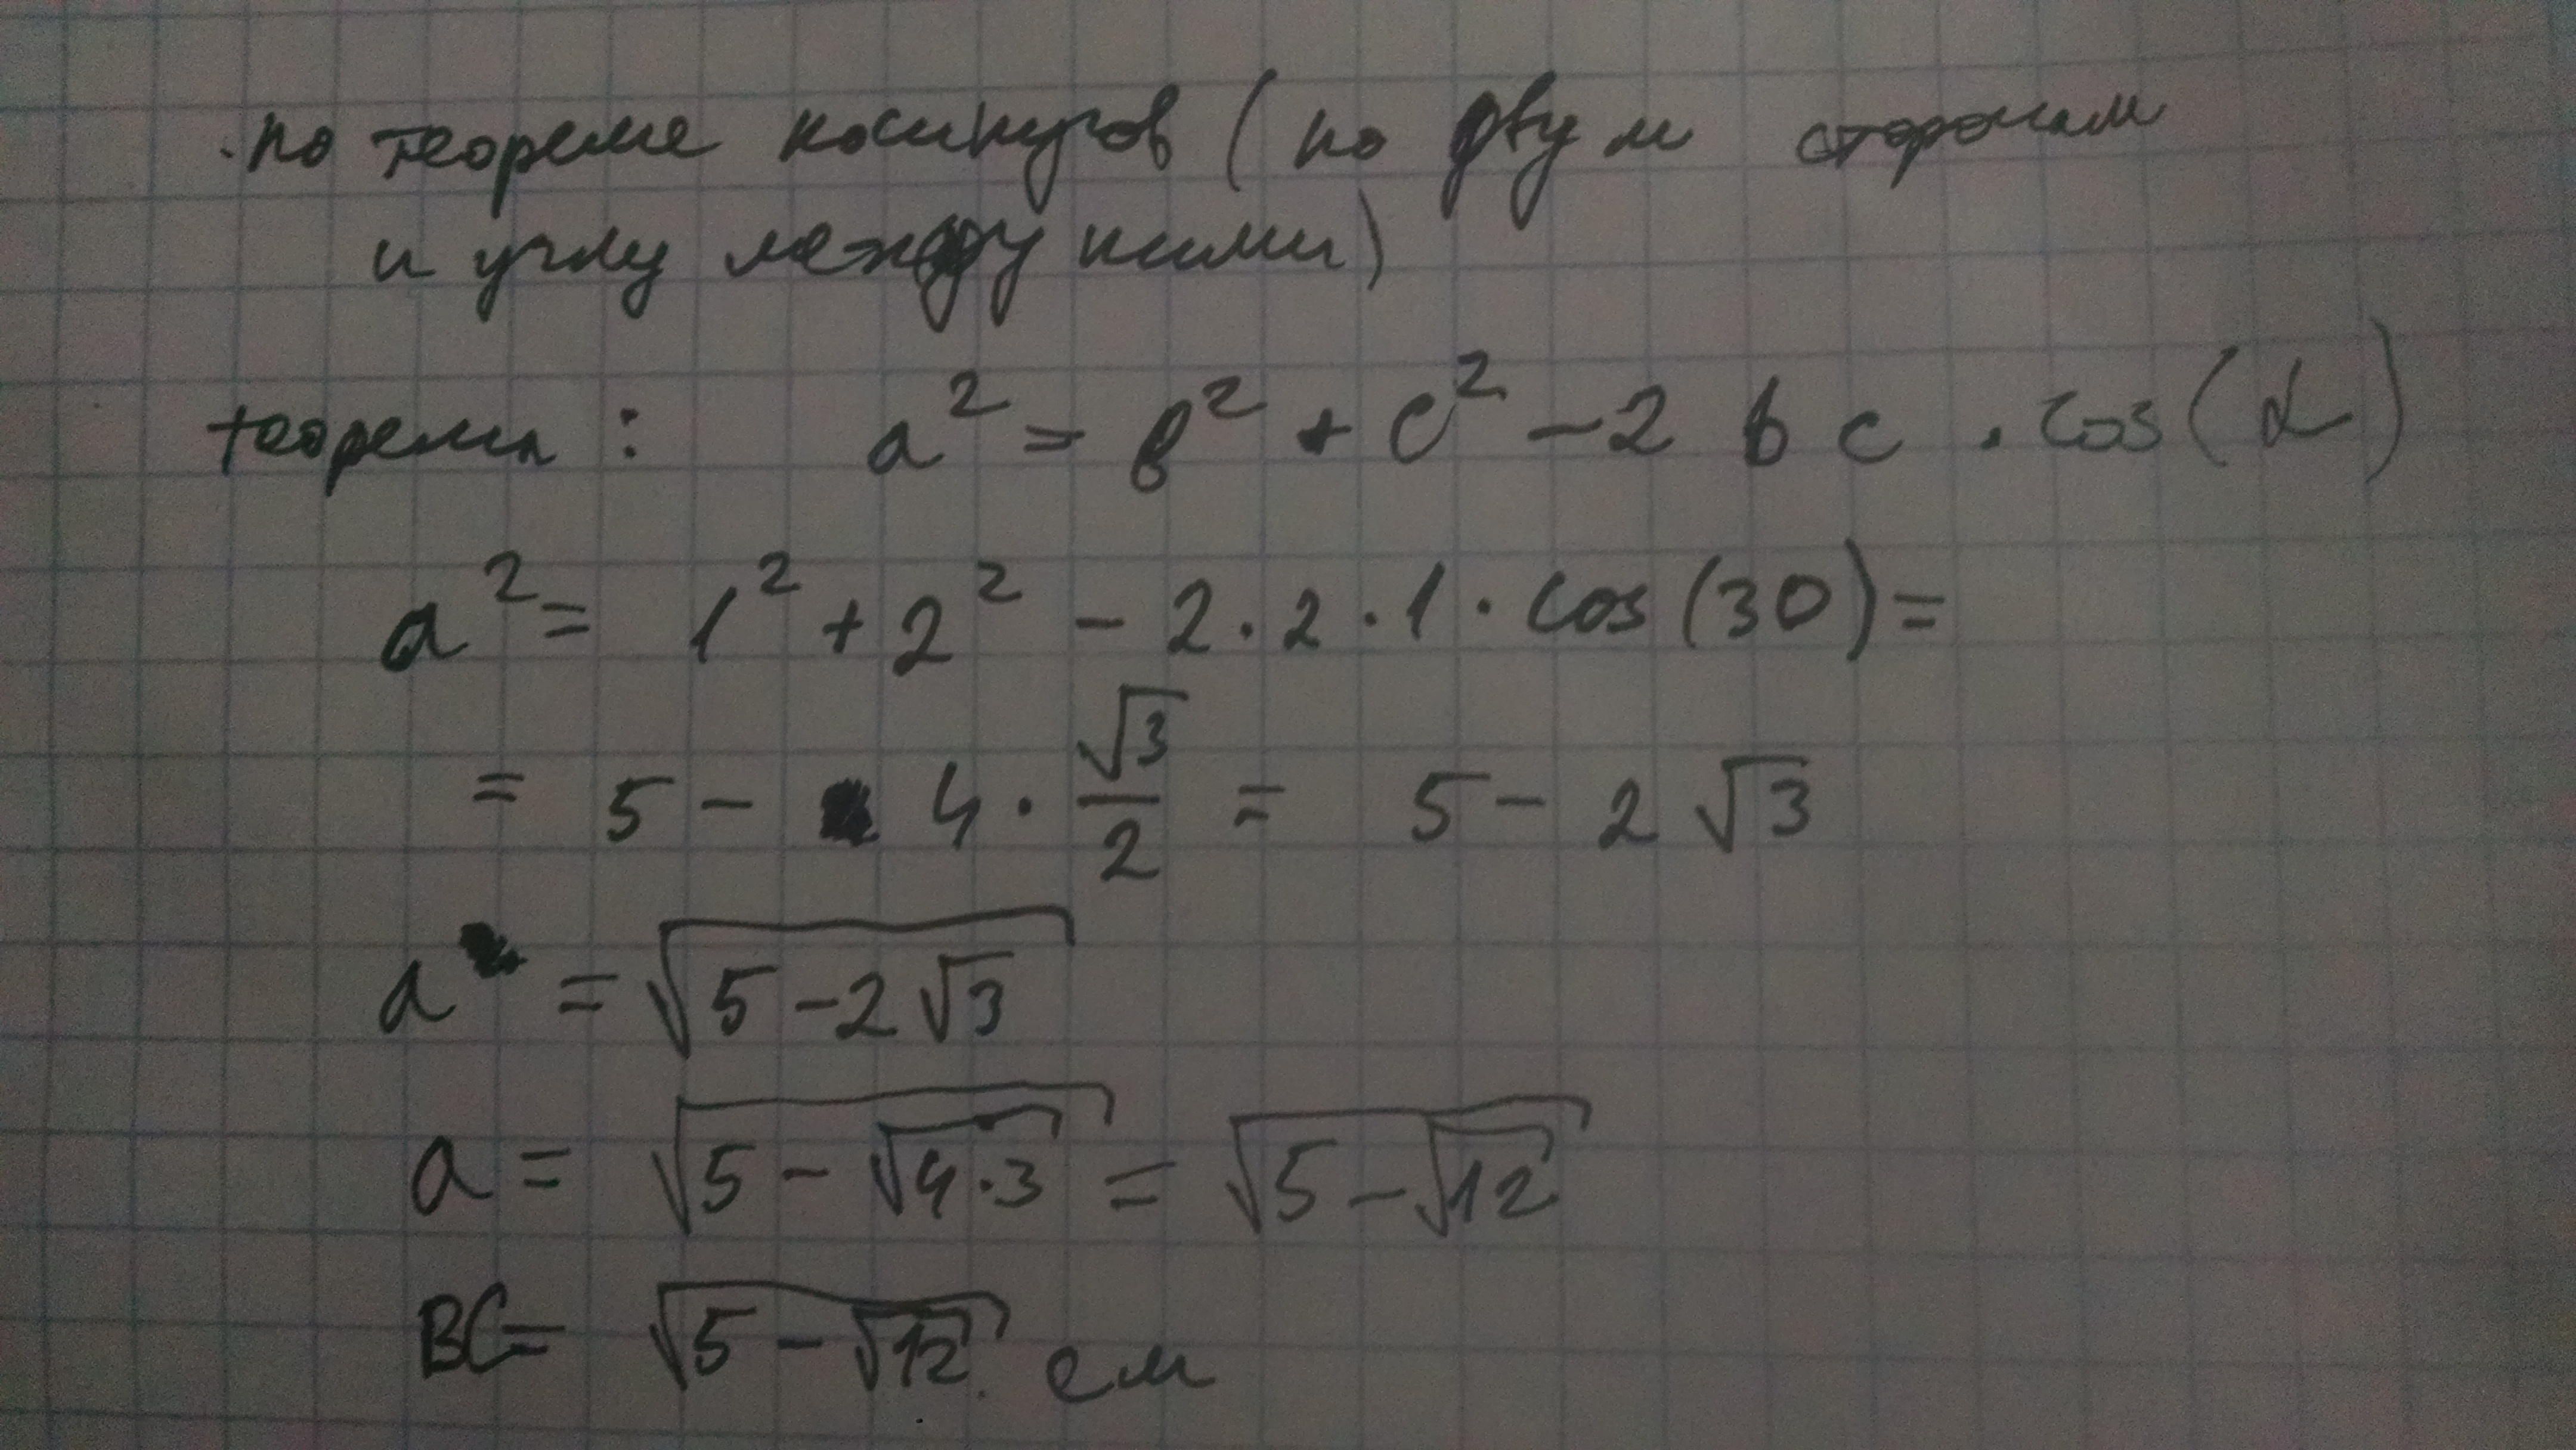 по теореме косинусов (по двум сторонам
и углу между ними)
теорема : a² = b² + c² - 2 b c · cos(α)
a² = 1² + 2² - 2 · 2 · 1 · cos(30) =
= 5 - 4 · √3/2 = 5 - 2√3
a = √(5 - 2√3)
a = √(5 - √(4·3)) = √(5 - √12)
BC = √(5 - √12) см